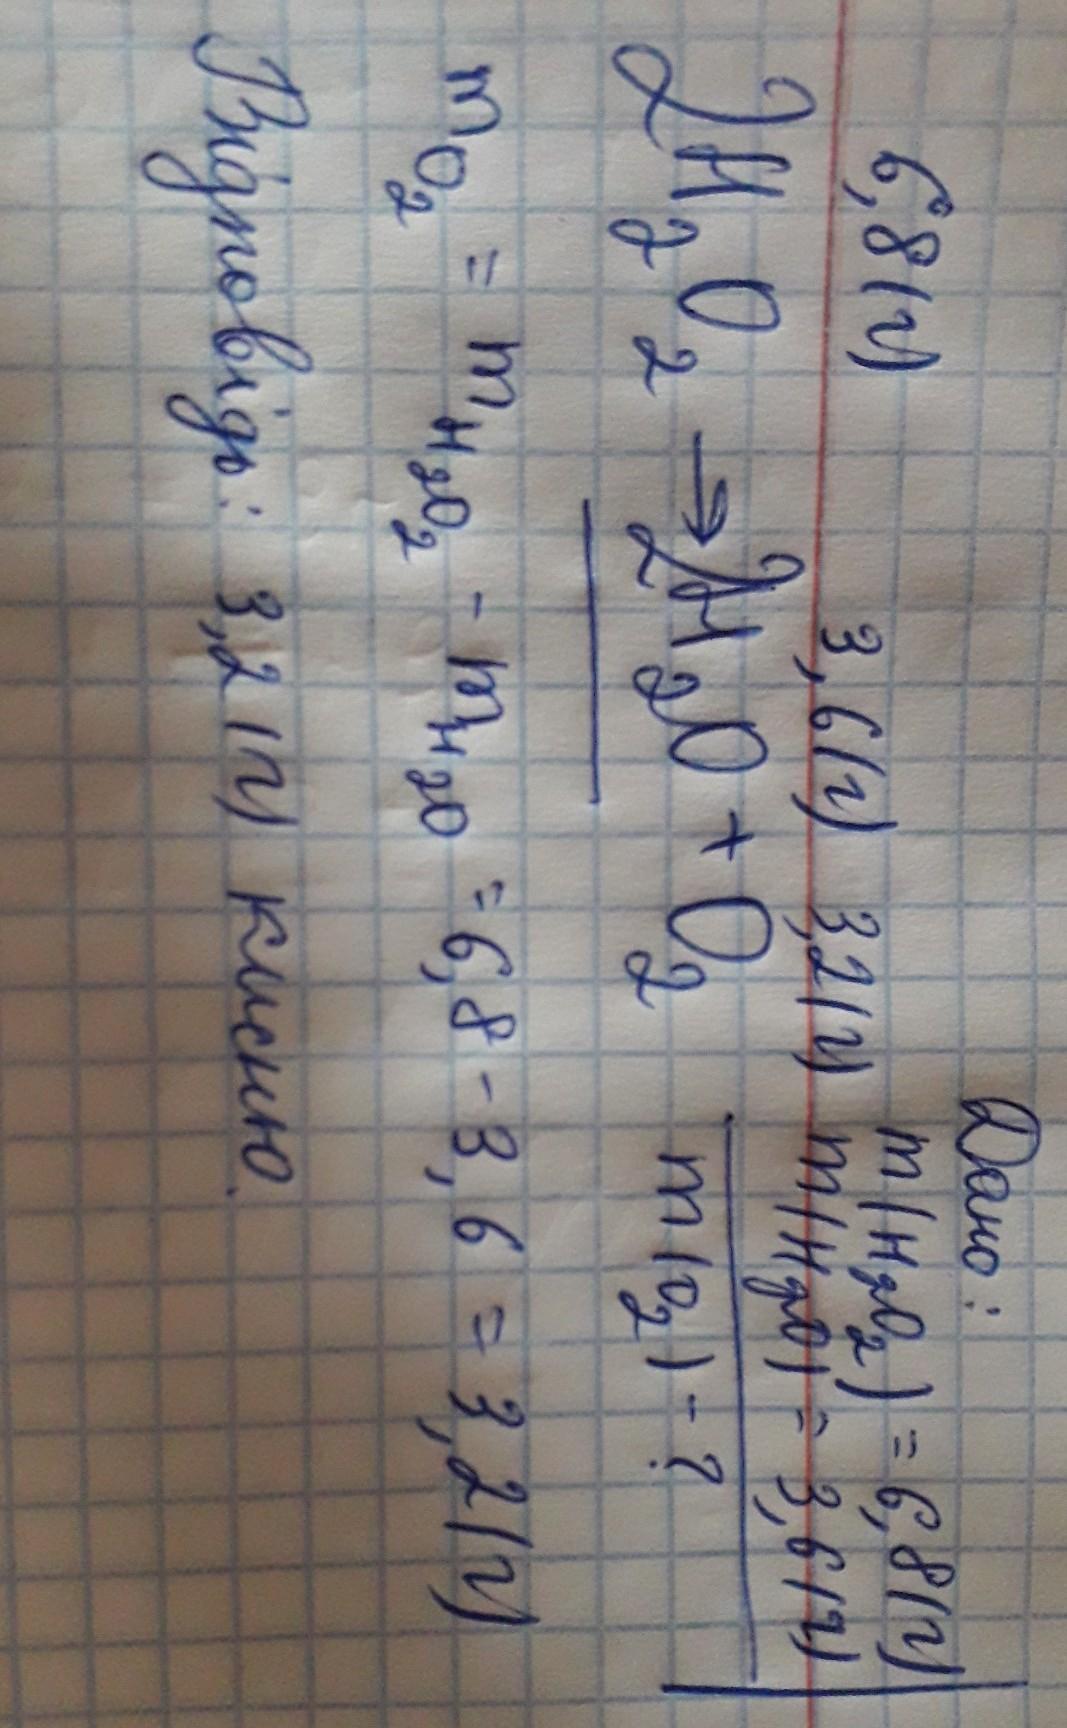 Дано:
m(H₂O₂) = 6,8(г)
m(H₂O) = 3,6(г)
m(O₂) - ?
6,8(г) 3,6(г) 3,2(г)
2H₂O₂ → 2H₂O + O₂
mO₂ = mH₂O₂ - mH₂O = 6,8 - 3,6 = 3,2(г)
Відповідь: 3,2(г) кисню.